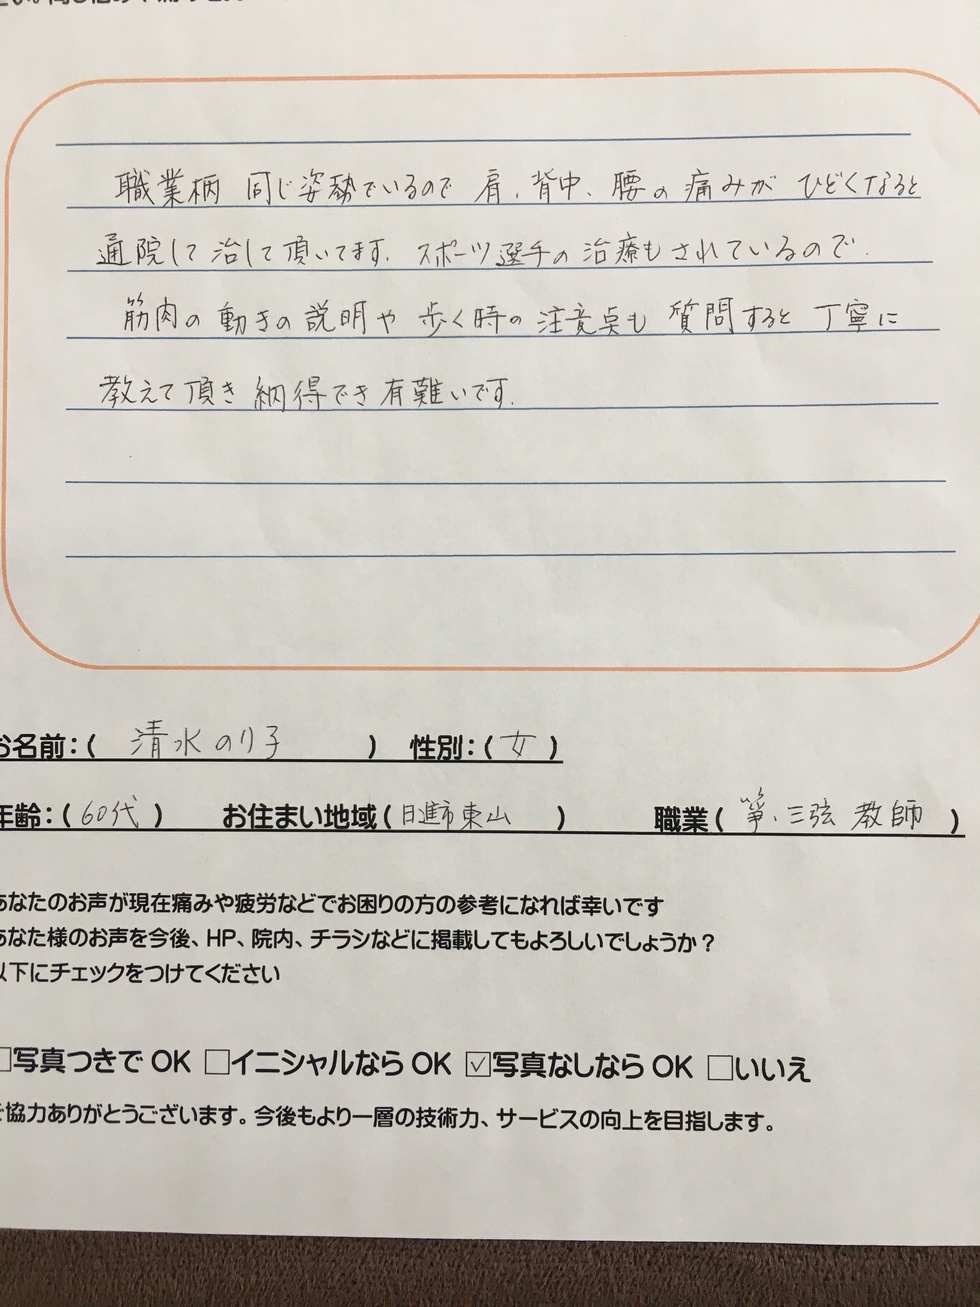 職業柄 同じ姿勢でいるので 肩、背中、腰の痛みが ひどくなると
通院して治して頂いてます. スポーツ選手の治療もされているので.
筋肉の動きの説明や 歩く時の注意点も 質問すると 丁寧に
教えて頂き 納得でき有難いです.
お名前:( 清水のり子 ) 性別:( 女 )
年齢:( 60代 ) お住まい地域( 日進市東山 ) 職業( 箏、三弦 教師 )
あなたのお声が現在痛みや疲労などでお困りの方の参考になれば幸いです
あなた様のお声を今後、HP、院内、チラシなどに掲載してもよろしいでしょうか？
以下にチェックをつけてください
□写真つきで OK □イニシャルなら OK ☑写真なしなら OK □いいえ
ご協力ありがとうございます。今後もより一層の技術力、サービスの向上を目指します。